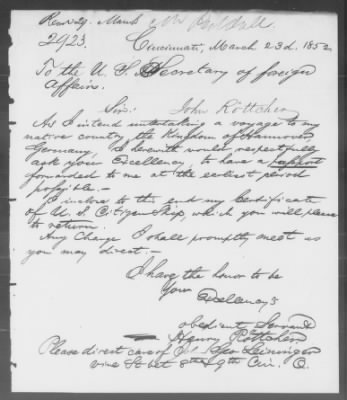 2923.
Cincinnati, March 23d. 1852
To the U. S. Secretary of foreign
Affairs.
Sir: John Röttcher
As I intend untertaking a voyage to my
native country, the Kingdom of Hannover
Germany, I herewith would respectfully
ask your Excellency, to have a passport
forwarded to me at the earliest period
possible.—
I inclose to this end my Certificate
of U. S. Citizenship, which you will please
to return.
Any Charge I shall promptly meet as
you may direct.—
I have the honor to be
Your Excellency's
obedient Servant
Henry Röttcher
Please direct care of Geo Leininger
vine St bet 8th & 9th Cin. O.